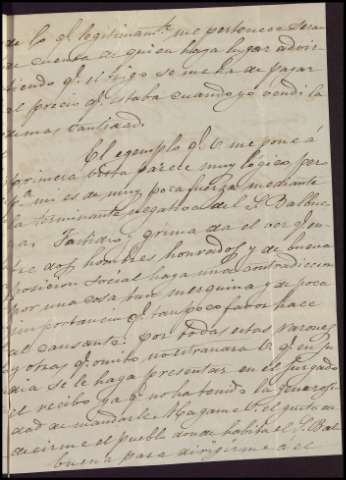 de lo q.e legitimam.te me pertenece sera
de cuenta de quien haya lugar advir
tiendo q.e el trigo se me ha de pagar
al precio q.e estaba cuando yo vendi la
demas cantidad.
El egemplo q.e V. me pone á
primera vista parece muy lógico, pero
p.a mi es de muy poca fuerza mediante
la terminante negativa del S. Balbue
na. Fastidio y grima da el ver q.e en
tre dos hombres honrados y de buena
posicion social haya una contradiccion
por una cosa tan mezquina y de poca
importancia q.e tampoco favor hace
al causante. Por todas estas razones
y otras q.e omito no estrañara V. q.e en su
dia se le haga presentar en el juzgado
el recibo ya q.e no ha tenido la generosi
dad de mandarle. Hagame V. el gusto de
decirme el pueblo donde habita el S. Bal
buena para dirigirme á el